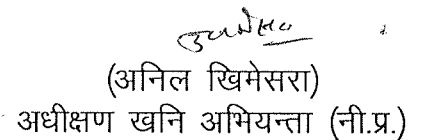 (अनिल खिमेसरा)
अधीक्षण खनि अभियन्ता (नी.प्र.)